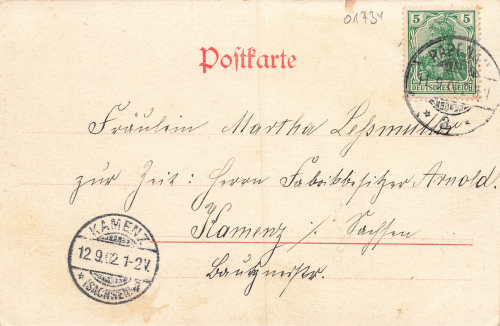 01734
5 5
DEUTSCHES REICH
Postkarte
Fräulein Martha Leßmüller
zur Zeit: Herrn Fabrikbesitzer Arnold.
Kamenz i/ Sachsen
Bautznerstr.
KAMENZ
12.9.02.1-2V.
* (SACHSEN) *